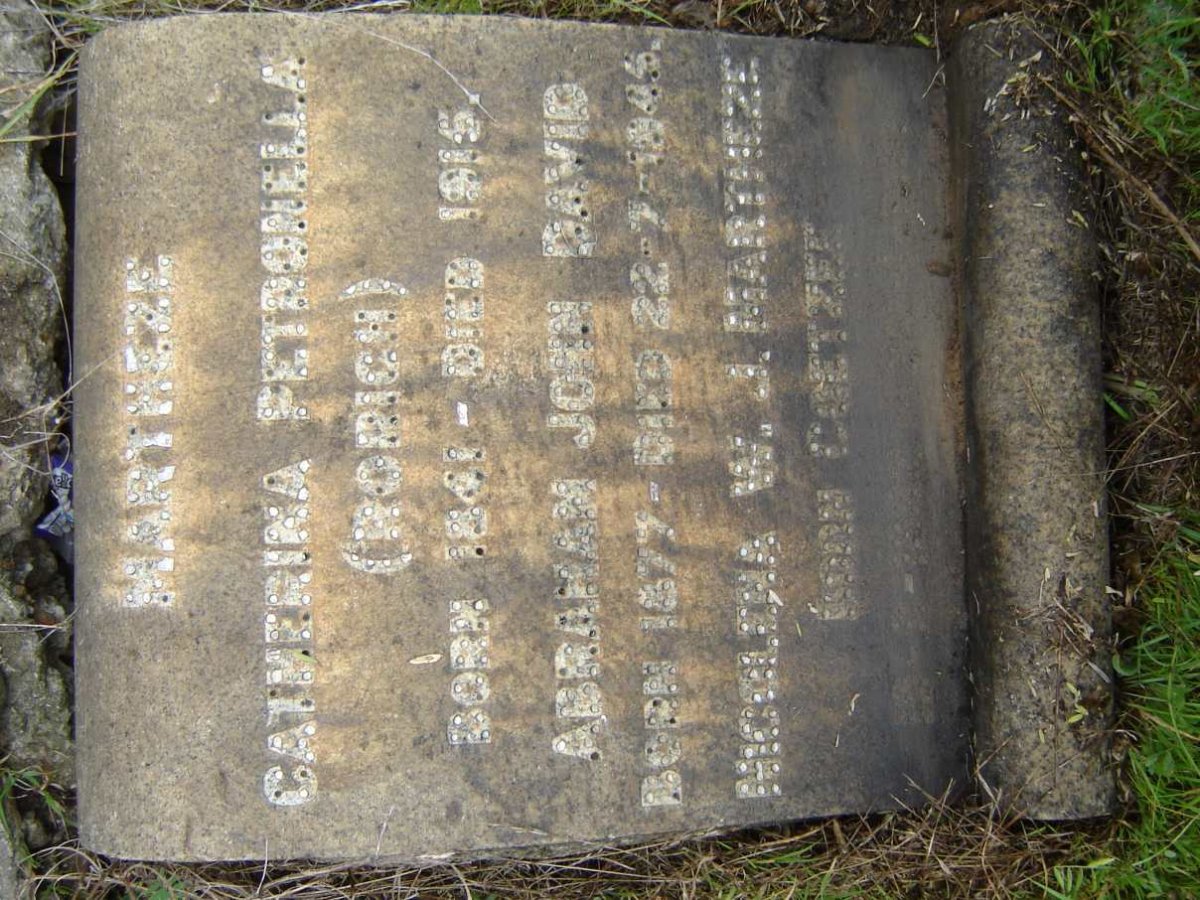 MARTHEZE
CATHERINA PETRONELLA
(BORICH)
BORN 1841 - DIED 1915.
ABRAHAM JOHN DAVID
BORN 1877 - DIED 22-7-1946.
W. J. MARTHEZE
BORN COETZEE